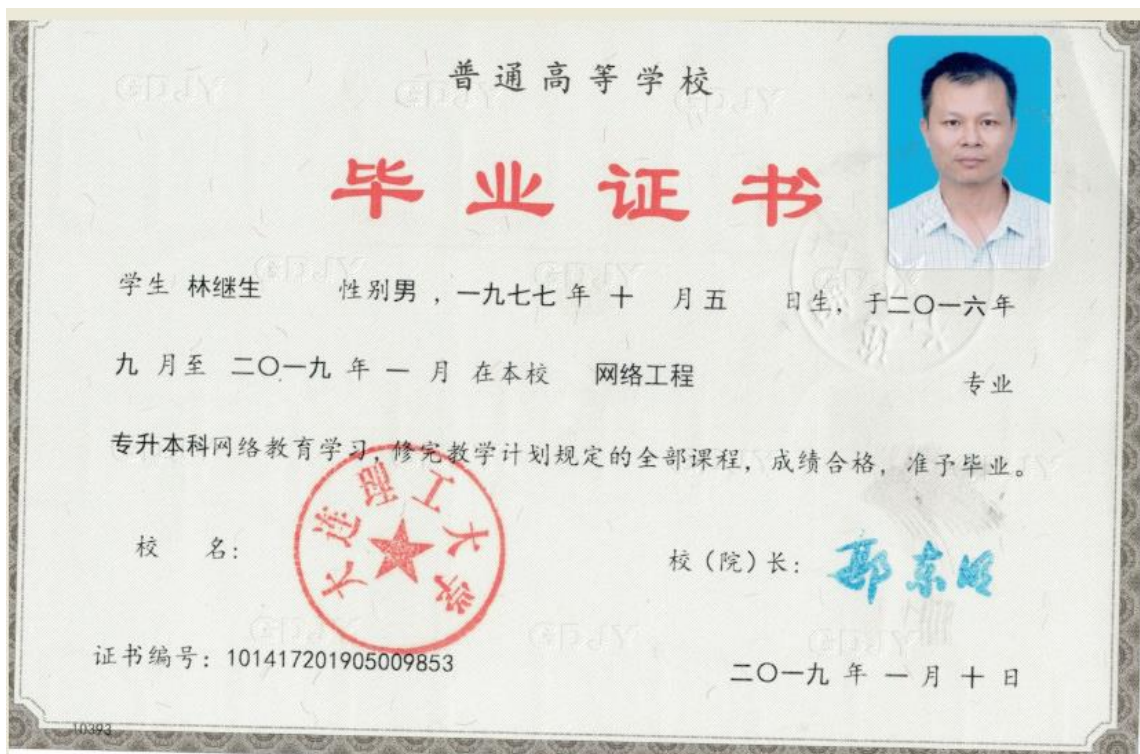 普通高等学校
毕业证书
学生 林继生 性别男，一九七七年 十 月五 日生，于二〇一六年
九 月至 二〇一九 年 一 月 在本校 网络工程 专业
专升本科网络教育学习，修完教学计划规定的全部课程，成绩合格，准予毕业。
校 名：
大连理工大学
校（院）长：郭东明
证书编号：101417201905009853
二〇一九 年 一 月 十 日
10393